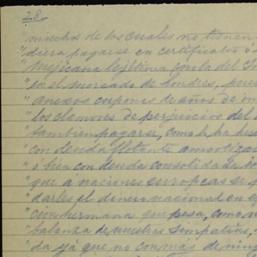 28.
muchos de los cuales no tienen
diera pagarse en certificados ó
Mejicana legítima
en el mercado de Londres,
anexos cupones de años de
los clamores de perjuicios del
tambien pagarse, como se ha
con deuda flotante amortiza
ó bien con deuda consolidada
que a naciones europeas se
darles el dinero nacional en
cion hermana que pesa, como
balanza de nuestras simpatías,
da ya que no con más de nin